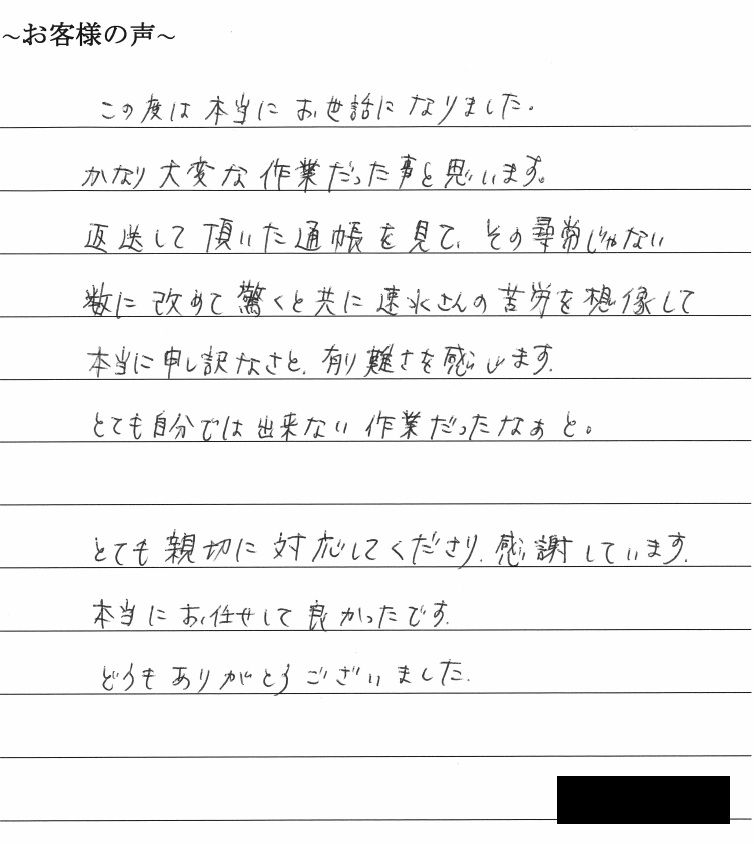 ~お客様の声~
この度は本当にお世話になりました。
かなり大変な作業だった事と思います。
返送して頂いた通帳を見て、その尋常じゃない
数に改めて驚くと共に速水さんの苦労を想像して
本当に申し訳なさと、有り難さを感じます。
とても自分では出来ない作業だったなぁと。
とても親切に対応してくださり、感謝しています。
本当にお任せして良かったです。
どうもありがとうございました。